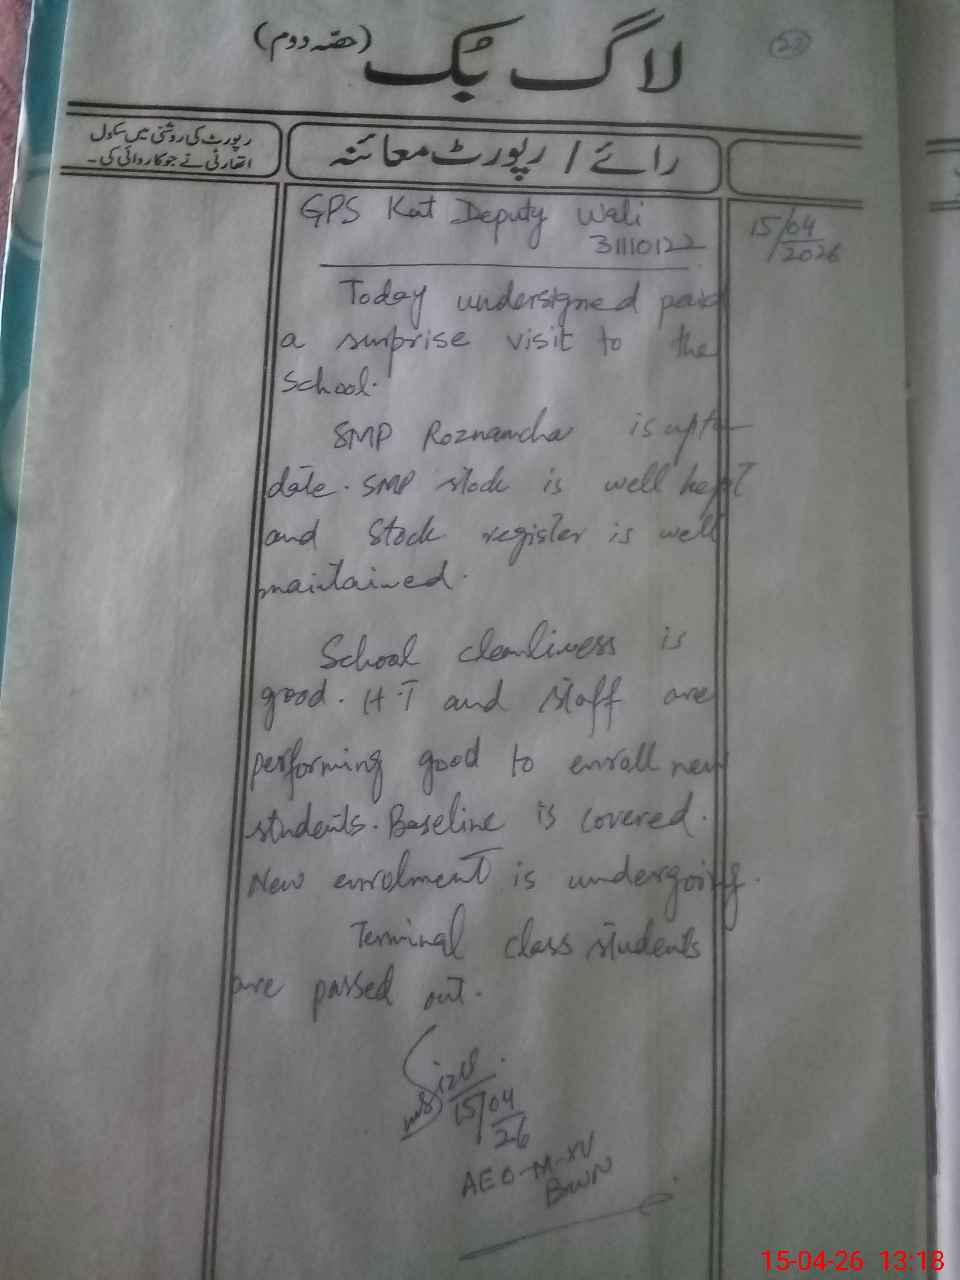 لاگ بک (حصہ دوم)
23
رپورٹ کی روشنی میں سکول
اتھارٹی نے جو کاروائی کی۔
رائے / رپورٹ معائنہ
GPS Kot Deputy Wali
31110122
15/04/2026
Today undersigned paid
a surprise visit to the
School.
SMP Roznamcha is upto
date. SMP stock is well kept
and stock register is well
maintained.
School cleanliness is
good. H.T and staff are
performing good to enroll new
students. Baseline is covered.
New enrolment is undergoing.
Terminal class students
are passed out.
15/04/26
AEO-M-XV
BWN
15-04-26 13:18